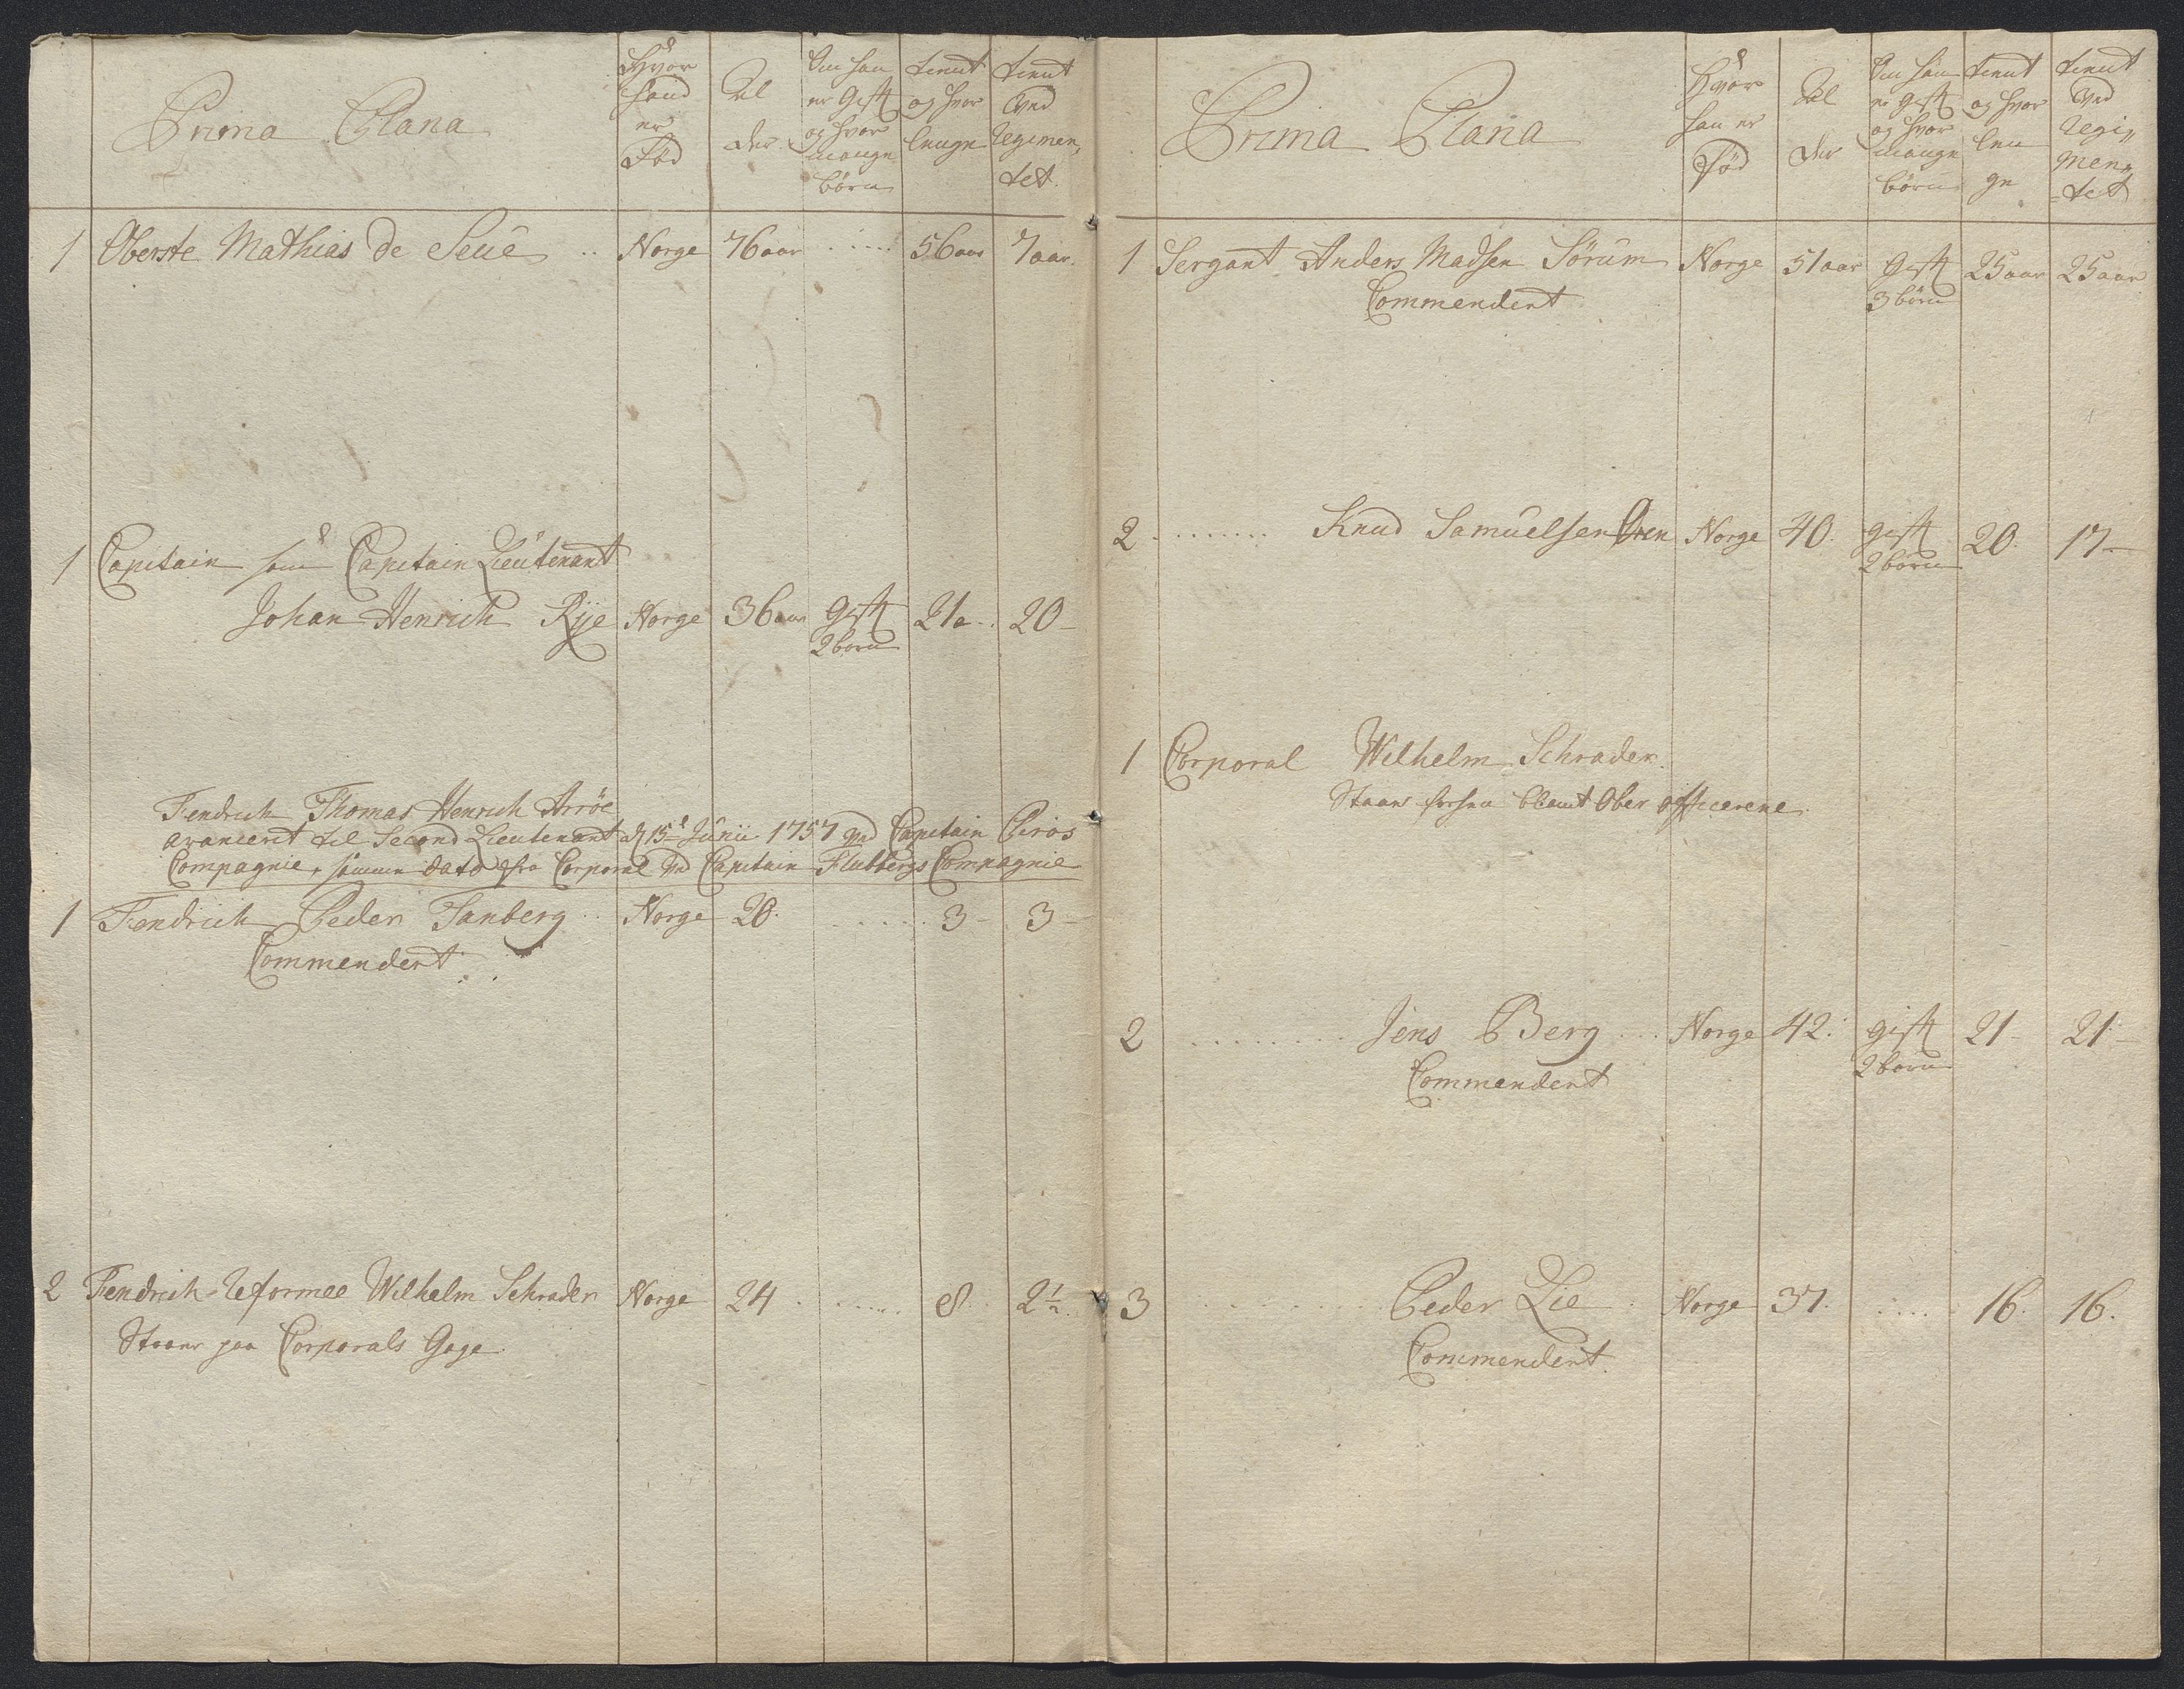 Prima Plana
Hvor hand er Föd
Al der
Om han er Gift og hvor mange börn
tient og hvor lenge
tient ved Regimen, tet.
1 Oberste Mathias de Seue .. Norge 76 aar ..... 56 aar 7 aar.
1 Capitain som Capitain Lieutenant
Johan Henrich Rÿe Norge 36 aar Gift 21 a.. 20 -
2 börn
Fendrich Thomas Henrich Arröe
avancerit til Second Lieutenant d 15de Junii 1757 ved Capitain Ciros
Compagnie, samme dato fra Corporal ved Capitain Flubbergs Compagnie
1 Fendrich Peder Tanberg .. Norge 20. ..... 3 - 3 -
Commendert
2 Fendrich Reformee Wilhelm Schrader Norge 24 ...... 8. 2 1/2.
Staaer paa Corporals Gage.
Prima Plana
Hvor han er Föd
Al der
Om han er Gift og hvor mange börn
tient og hvor len ge
tient ved Regi, men, tet
1 Sergant Anders Madsen Sörum Norge 51 aar Gift 25 aar 25 aar
Commendert 3 börn
2 ....... Knud Samuelsen Norge 40. gift 20. 17 -
2 börn
1 Corporal Wilhelm Schrader.
Staaer forhen blant Ober officerene.
2 ........ Jens Berg ... Norge 42. gift 21 - 21 -
Commendert 2 börn
3 ..... Peder Lie . Norge 37. ..... 16. 16.
Commendert.